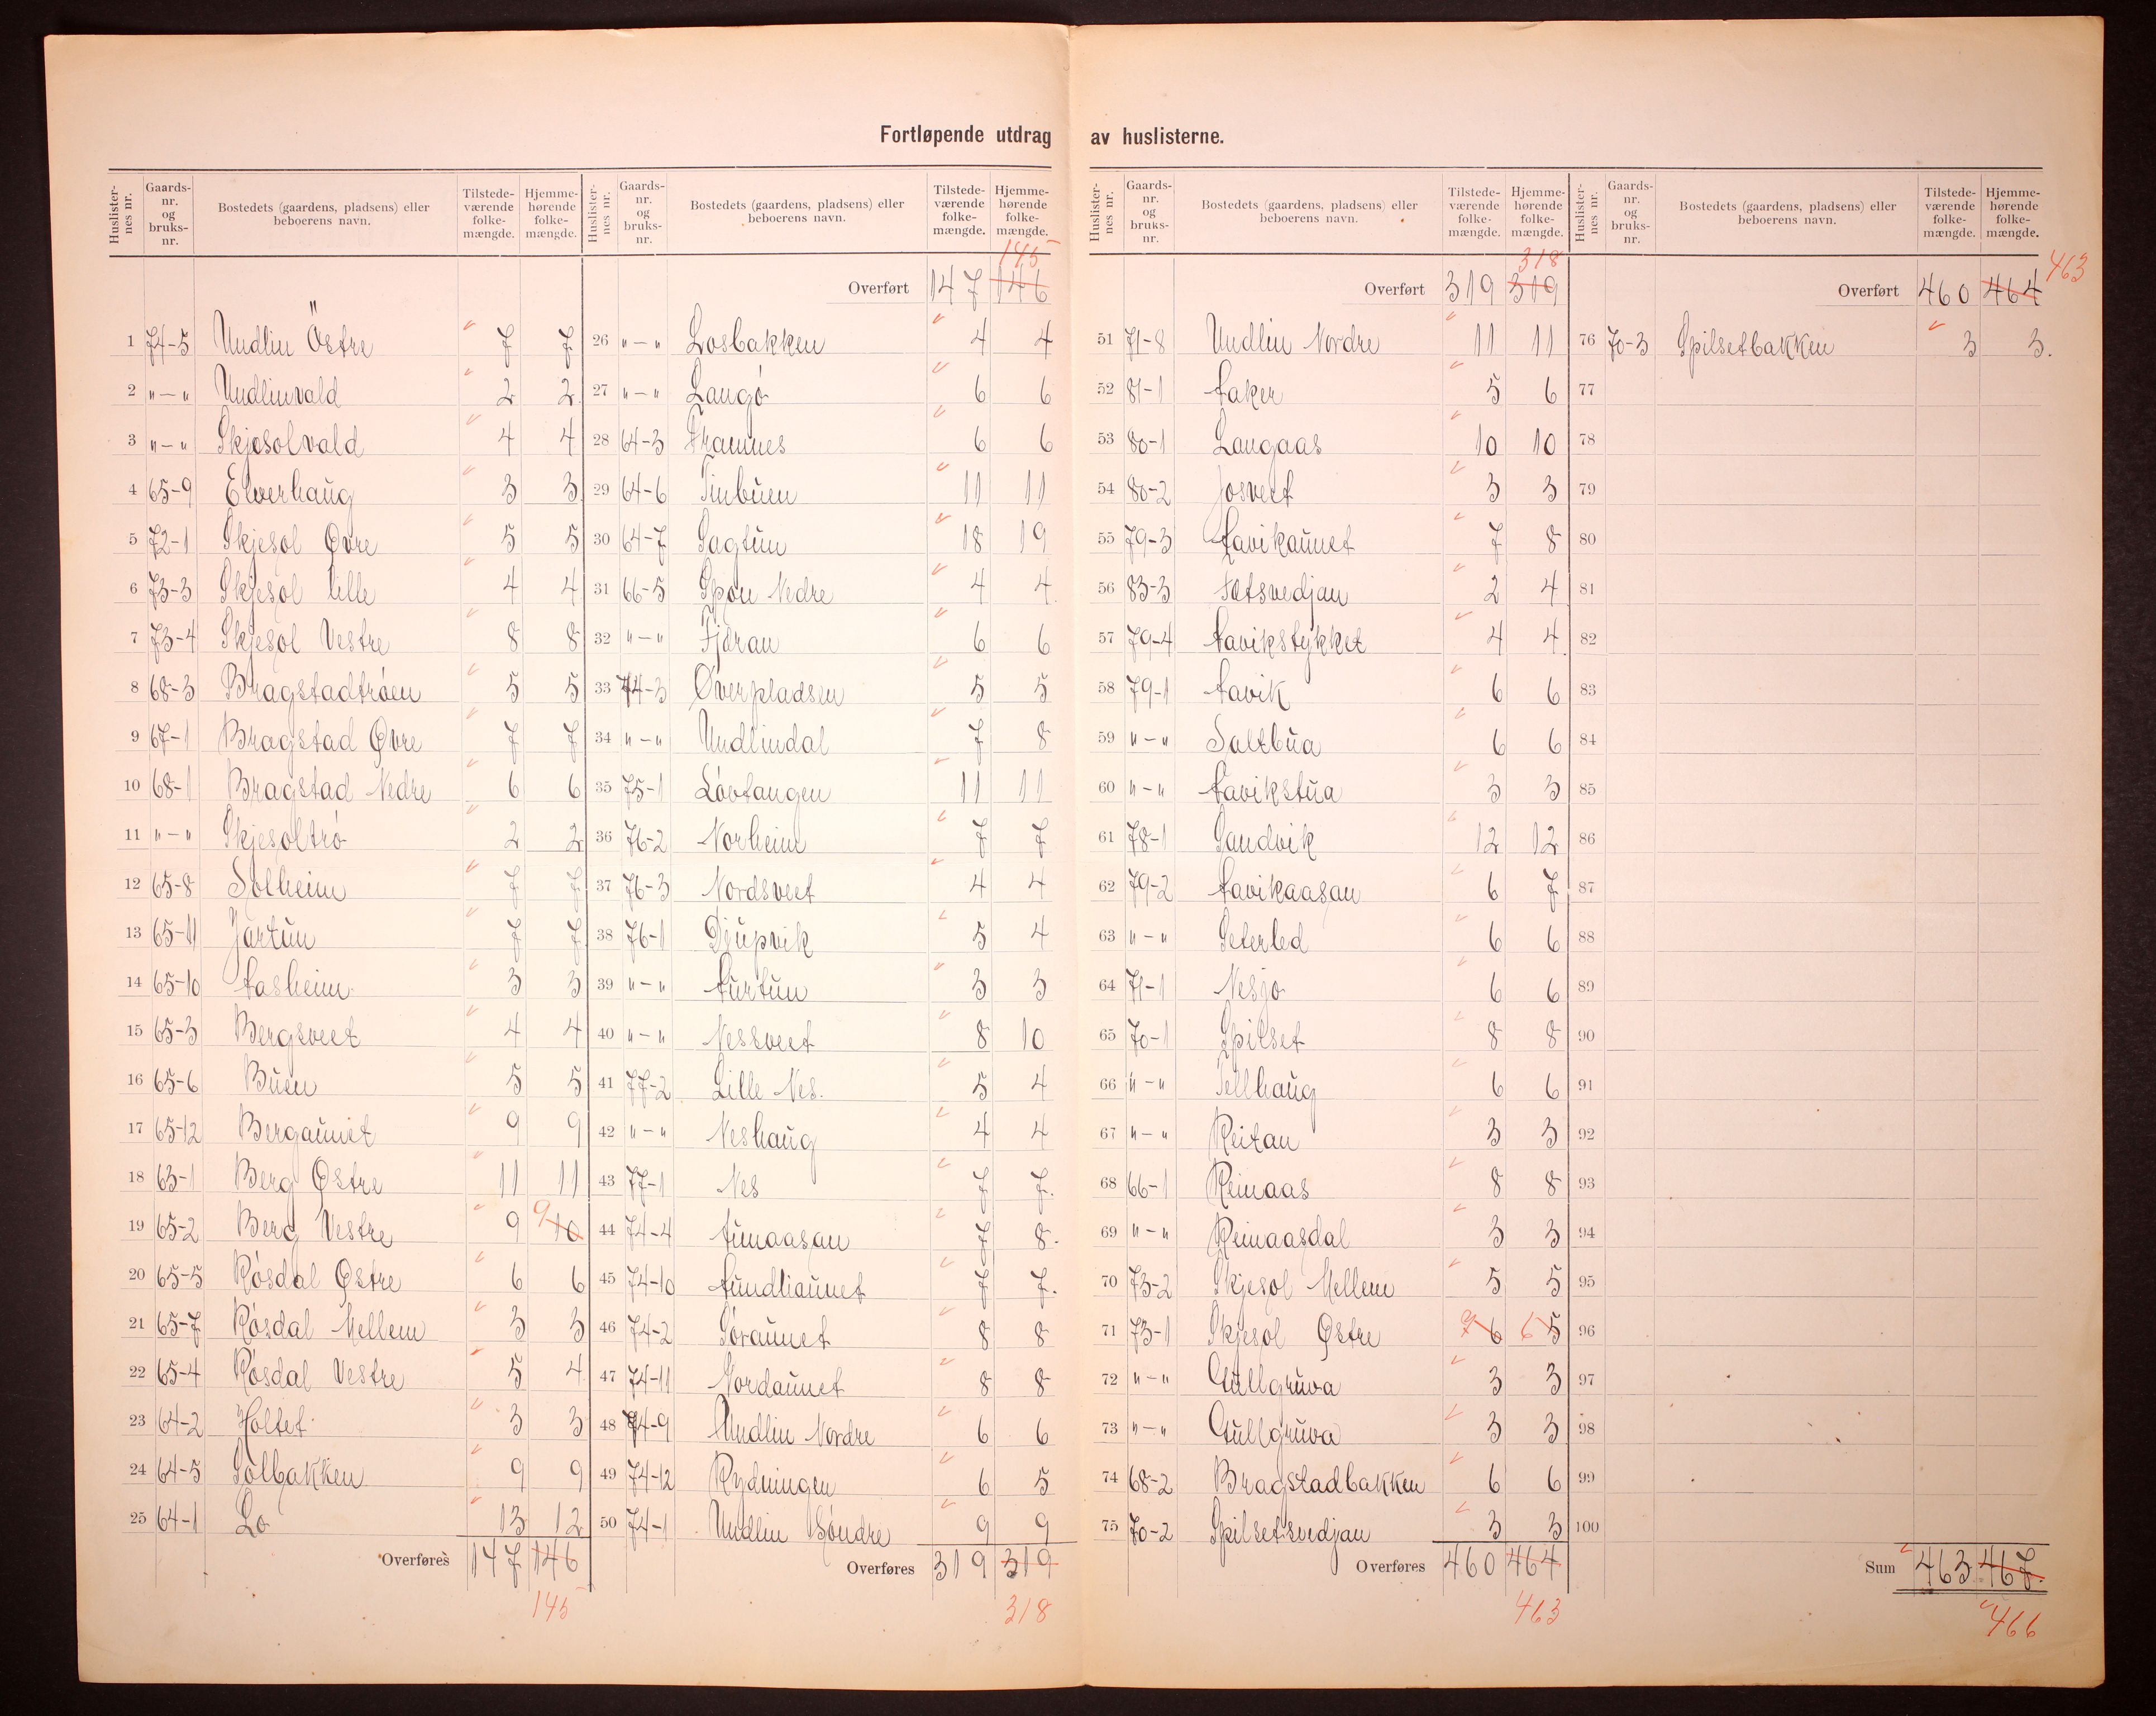 Fortløpende utdrag av huslisterne.
Huslisternes nr. Gaards-nr. og bruks-nr. Bostedets (gaardens, pladsens) eller beboerens navn. Tilstede-værende folke-mængde. Hjemme-hørende folke-mængde.
1 74-5 Undlin Östre 7 7
2 "-" Undlinvald 2 2
3 "-" Skjesolvald 4 4
4 65-9 Elverhaug 3 3
5 72-1 Skjesol Øvre 5 5
6 73-3 Skjesol lille 4 4
7 73-4 Skjesol Vestre 8 8
8 68-3 Bragstadtrøen 5 5
9 67-1 Bragstad Øvre 7 7
10 68-1 Bragstad Nedre 6 6
11 "-" Skjesoltrø 2 2
12 65-8 Solheim 7 7
13 65-11 Jartun 7 7
14 65-10 Aasheim 3 3
15 65-3 Bergsveet 4 4
16 65-6 Buen 5 5
17 65-12 Bergaunet 9 9
18 63-1 Berg Østre 11 11
19 65-2 Berg Vestre 9 9 10
20 65-5 Røsdal Østre 6 6
21 65-7 Røsdal Mellem 3 3
22 65-4 Røsdal Vestre 5 4
23 64-2 Holtet 3 3
24 64-5 Solbakken 9 9
25 64-1 Lo 13 12
Overføres 147 146
145
Huslisternes nr. Gaards-nr. og bruks-nr. Bostedets (gaardens, pladsens) eller beboerens navn. Tilstede-værende folke-mængde. Hjemme-hørende folke-mængde.
145
Overført 147 146
26 "-" Losbakken 4 4
27 "-" Langø 6 6
28 64-3 Framnes 6 6
29 64-6 Tinbuen 11 11
30 64-7 Sagtun 18 19
31 66-5 Spon Nedre 4 4
32 "-" Fjæran 6 6
33 74-3 Øverpladsen 5 5
34 "-" Undlindal 7 8
35 75-1 Løvtangen 11 11
36 76-2 Norheim 7 7
37 76-3 Nordsveet 4 4
38 76-1 Djupvik 5 4
39 "-" Aurtun 3 3
40 "-" Nessveet 8 10
41 77-2 Lille Nes. 5 4
42 "-" Neshaug 4 4
43 77-1 Nes 7 7.
44 74-4 Aunaasan 7 8.
45 74-10 Aundliaunet 7 7.
46 74-2 Søraunet 8 8
47 74-11 Nordaunet 8 8
48 74-9 Undlin Nordre 6 6
49 74-12 Rydningen 6 5
50 74-1 Undlin Søndre 9 9
Overføres 319 319
318
Huslisternes nr. Gaards-nr. og bruks-nr. Bostedets (gaardens, pladsens) eller beboerens navn. Tilstede-værende folke-mængde. Hjemme-hørende folke-mængde.
318
Overført 319 319
51 71-8 Undlin Nordre 11 11
52 81-1 Aaker 5 6
53 80-1 Langaas 10 10
54 80-2 Josveet 3 3
55 79-3 Aavikaunet 7 8
56 83-3 Sætsvedjan 2 4
57 79-4 Aavikstykket 4 4
58 79-1 Aavik 6 6
59 "-" Saltbua 6 6
60 "-" Aavikstua 3 3
61 78-1 Sandvik 12 12
62 79-2 Aavikaasan 6 7
63 "-" Seterled 6 6
64 71-1 Nesjo 6 6
65 70-1 Spilset 8 8
66 "-" Tellhaug 6 6
67 "-" Reitan 3 3
68 66-1 Reinaas 8 8
69 "-" Reinaasdal 3 3
70 73-2 Skjesol Mellem 5 5
71 73-1 Skjesol Østre 7 6 6 5
72 "-" Gullgruva 3 3
73 "-" Gullgruva 3 3
74 68-2 Bragstadbakken 6 6
75 70-2 Spilsetsvedjan 3 3
Overføres 460 464
463
Huslisternes nr. Gaards-nr. og bruks-nr. Bostedets (gaardens, pladsens) eller beboerens navn. Tilstede-værende folke-mængde. Hjemme-hørende folke-mængde.
Overført 460 464 463
76 70-3 Spilsetbakken 3 3.
77
78
79
80
81
82
83
84
85
86
87
88
89
90
91
92
93
94
95
96
97
98
99
100
Sum 463 467.
466